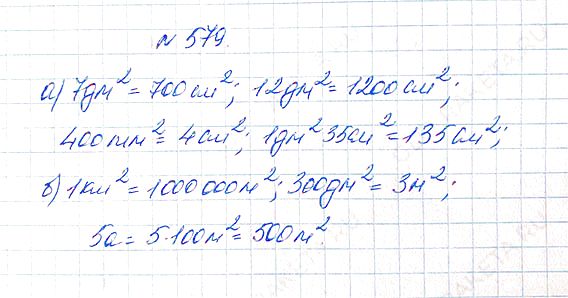 № 579.
а) 7дм² = 700см²; 12дм² = 1200см²;
400мм² = 4см²; 1дм² 35см² = 135см²;
б) 1км² = 1000000м²; 300дм² = 3м²;
5а = 5·100м² = 500м².